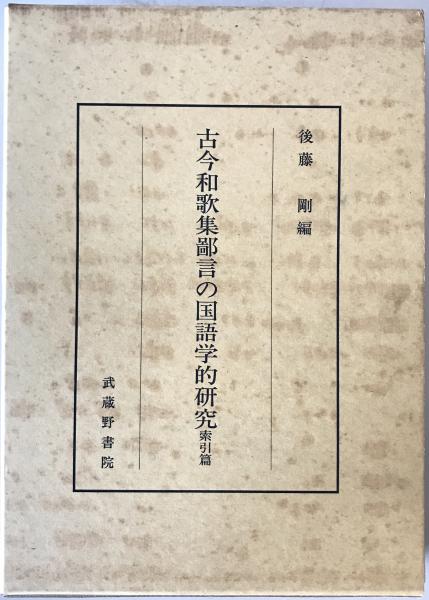 後藤 剛編
古今和歌集鄙言の国語学的研究 索引篇
武蔵野書院